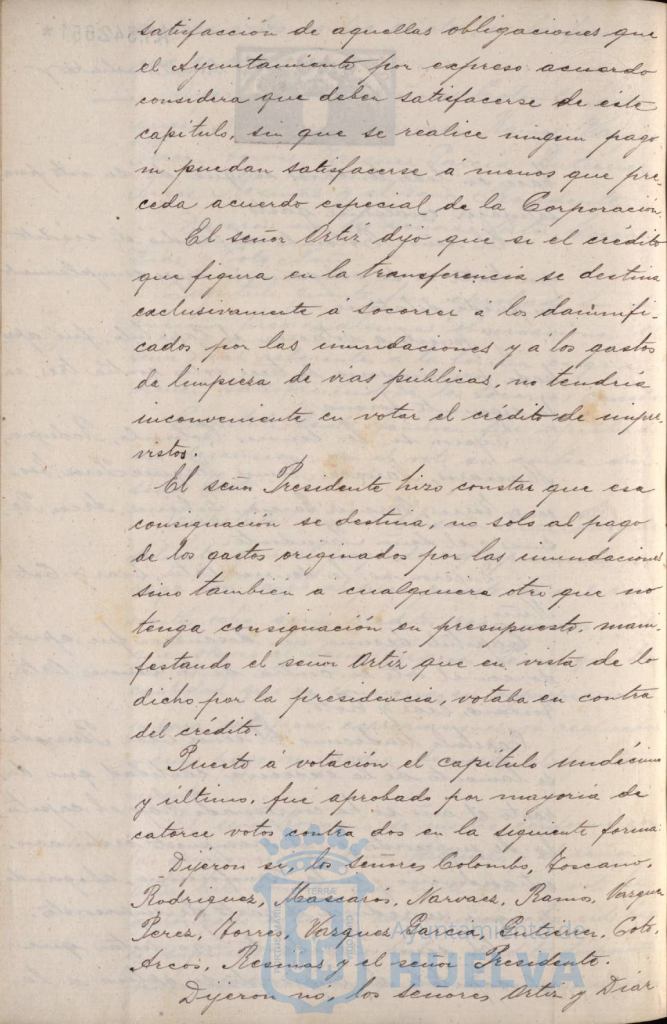 satisfacción de aquellas obligaciones que
el Ayuntamiento por expreso acuerdo
considera que deben satisfacerse de este
capitulo, sin que se realice ningun pago
ni puedan satisfacerse á menos que pre-
ceda acuerdo especial de la Corporación.
El señor Ortiz dijo que si el crédito
que figura en la transferencia se destina
exclusivamente á socorrer á los damnifi-
cados por las inundaciones y á los gastos
de limpieza de vias públicas, no tendría
inconveniente en votar el crédito de impre-
vistos.
El señor Presidente hizo constar que esa
consignación se destina, no solo al pago
de los gastos originados por las inundaciones
sino también a cualquiera otro que no
tenga consignación en presupuesto, mani-
festando el señor Ortiz que en vista de lo
dicho por la presidencia, votaba en contra
del crédito.
Puesto á votación el capítulo undécimo
y último, fué aprobado por mayoria de
catorce votos contra dos en la siguiente forma:
Dijeron si, los señores Colombo, Toscano,
Rodriguez, Mascarós, Narvaez, Ramos, Vazquez
Perez, Torres, Vazquez Garcia, Gutierrez, Coto,
Arcos, Resmas y el señor Presidente.
Dijeron nó, los señores Ortiz y Diaz
Ayuntamiento de
HUELVA